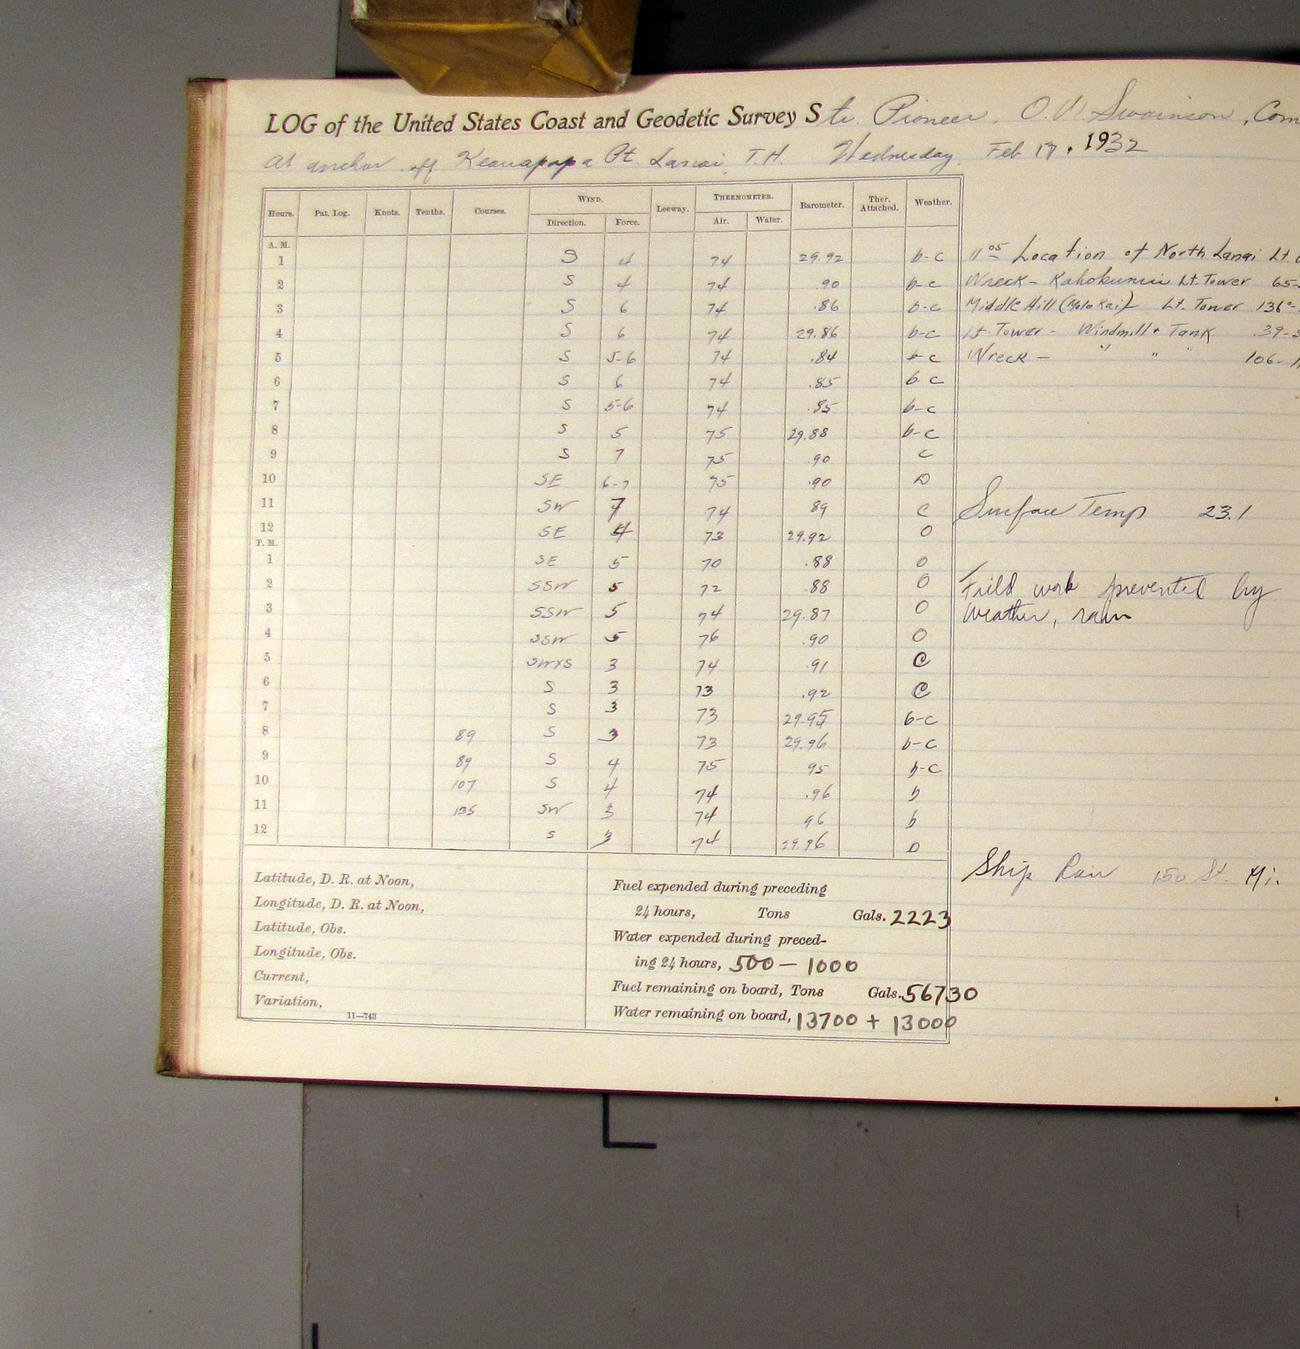 LOG of the United States Coast and Geodetic Survey Str. Pioneer. O. W. Swainson, Com
At anchor off Keanapapa Pt. Lanai, T.H. Wednesday, Feb 17, 1932
Hours. Pat. Log. Knots. Tenths. Courses. WIND. Leeway. THERMOMETER. Barometer. Ther. Attached. Weather.
Direction. Force. Air. Water.
A. M.
1 S 4 74 29.92 b-c 11 05 Location of North Lanai Lt.
2 S 4 74 .90 b-c Wreck - Lt. Tower 65-
3 S 6 74 .86 b-c Middle Hill (Molokai) Lt. Tower 136°-
4 S 6 74 29.86 b-c Lt. Tower - Windmill + Tank 39-
5 S 5-6 74 .84 b-c Wreck - " " " 106-
6 S 6 74 .85 b-c
7 S 5-6 74 .85 b-c
8 S 5 75 29.88 b-c
9 S 7 75 90 c
10 SE 6-7 75 .90 O
11 SW 7 74 89 c Surface Temp 23.1
12 SE 4 73 29.92 O
P. M.
1 SE 5 70 .88 O
2 SSW 5 72 .88 O Feild work prevented by
3 SSW 5 74 29.87 O Weather, rain
4 SSW 5 76 .90 O
5 SWXS 3 74 .91 C
6 S 3 73 .92 C
7 S 3 73 29.95 b-c
8 89 S 3 73 29.96 b-c
9 89 S 4 75 95 b-c
10 107 S 4 74 .96 b
11 135 SW 3 74 96 b
12 S 3 74 29.96 b
Ship Run 150 St. Mi.
Latitude, D. R. at Noon,
Longitude, D. R. at Noon,
Latitude, Obs.
Longitude, Obs.
Current,
Variation,
11—743
Fuel expended during preceding
24 hours, Tons Gals. 2223
Water expended during preced-
ing 24 hours, 500 - 1000
Fuel remaining on board, Tons Gals. 56730
Water remaining on board, 13700 + 13000